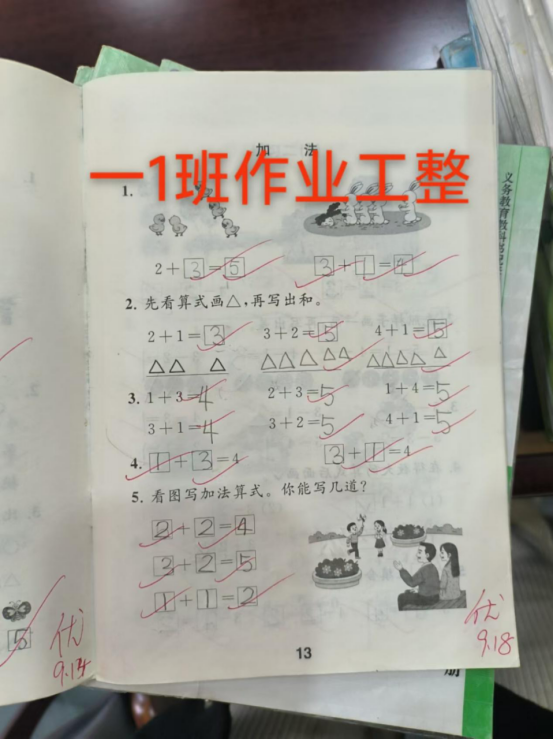 加 法
一1班作业工整
1.
2+3=5 3+1=4
2. 先看算式画△,再写出和。
2+1=3 3+2=5 4+1=5
△△ △ △△△△△ △△△△ △
3. 1+3=4 2+3=5 1+4=5
3+1=4 3+2=5 4+1=5
4. 1+3=4 3+1=4
5. 看图写加法算式。你能写几道?
2+2=4
3+2=5
1+1=2
5
优
9.14
优
9.18
13
义务教育教科书
册